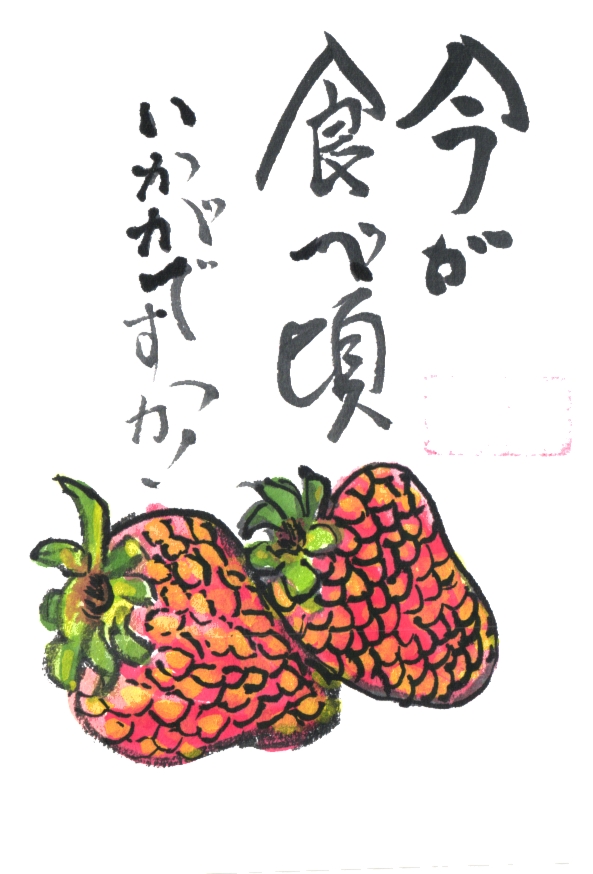 今が
食べ頃
いかがですか